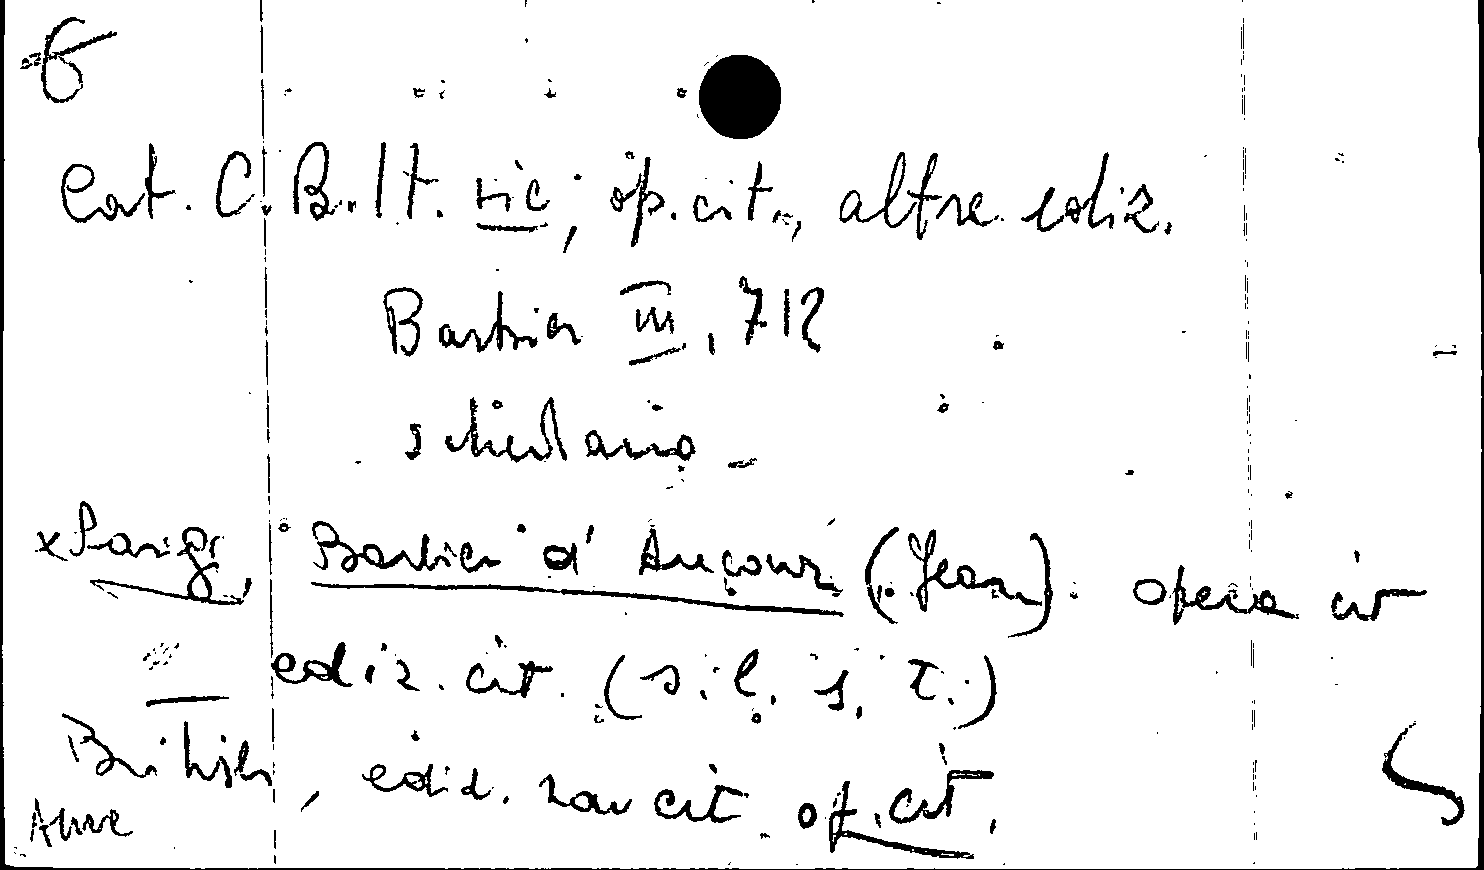 6
Cat. C.B.It. sic; op. cit., altre ediz.
Barbier III, 712
schedario -
x Parigi, Barbier d'Aucour (Jean). opera cit
ediz. cit. (s. l. s. t.)
British, ediz. non cit. op. cit.